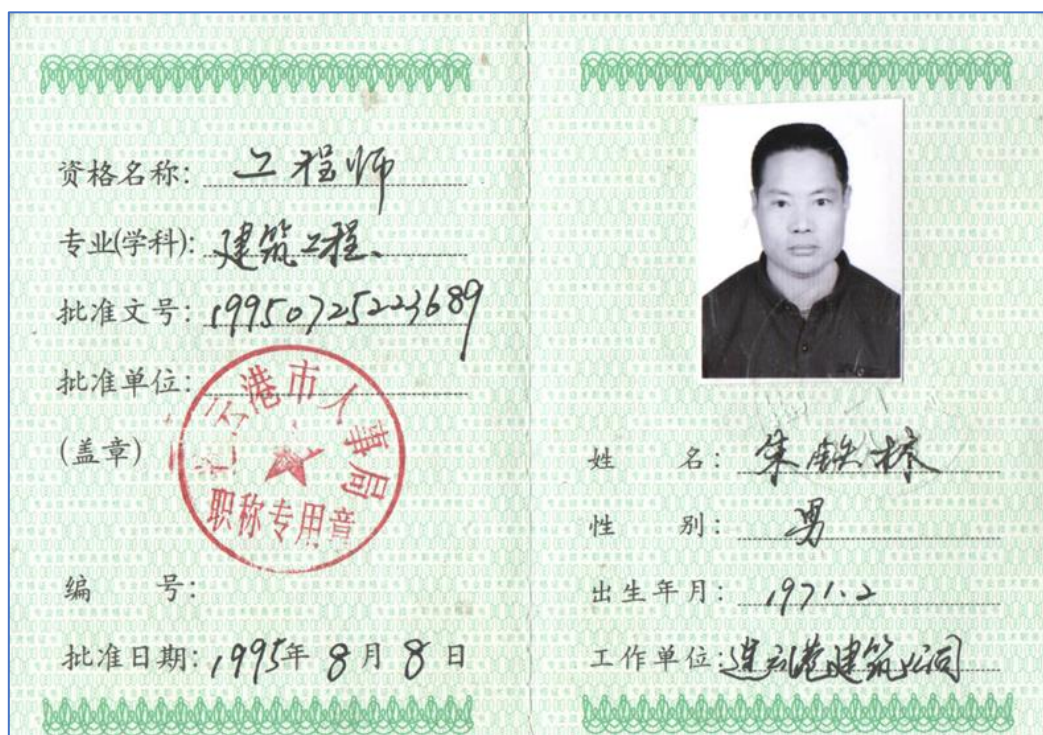 资格名称: 工程师
专业(学科): 建筑工程、
批准文号: 19950725223689
批准单位:
(盖章)
连云港市人事局
职称专用章
编 号:
批准日期: 1995年8月8日
姓 名: 朱铁林
性 别: 男
出生年月: 1971.2
工作单位: 连云港建筑公司